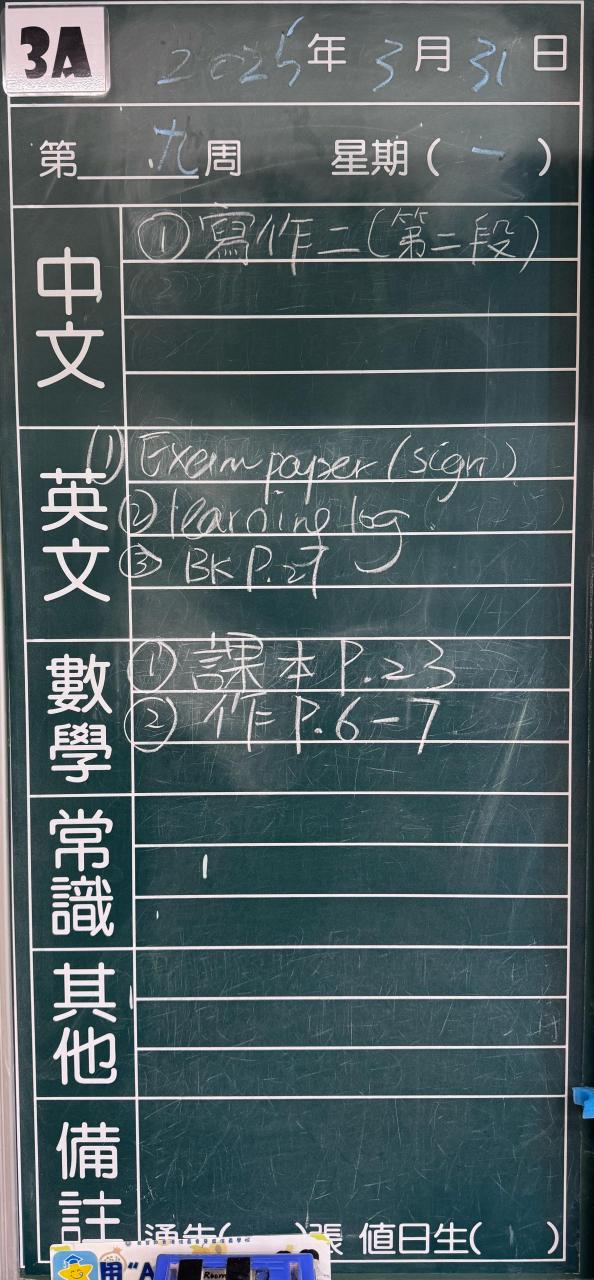 3A
2025年3月31日
第九周 星期(一)
中文
①寫作二(第二段)
英文
① Exam paper (sign)
② learning log
③ BK P.27
數學
①課本 P.23
②作 P.6-7
常識
其他
備註
通告( )張 值日生( )
用"A
Room